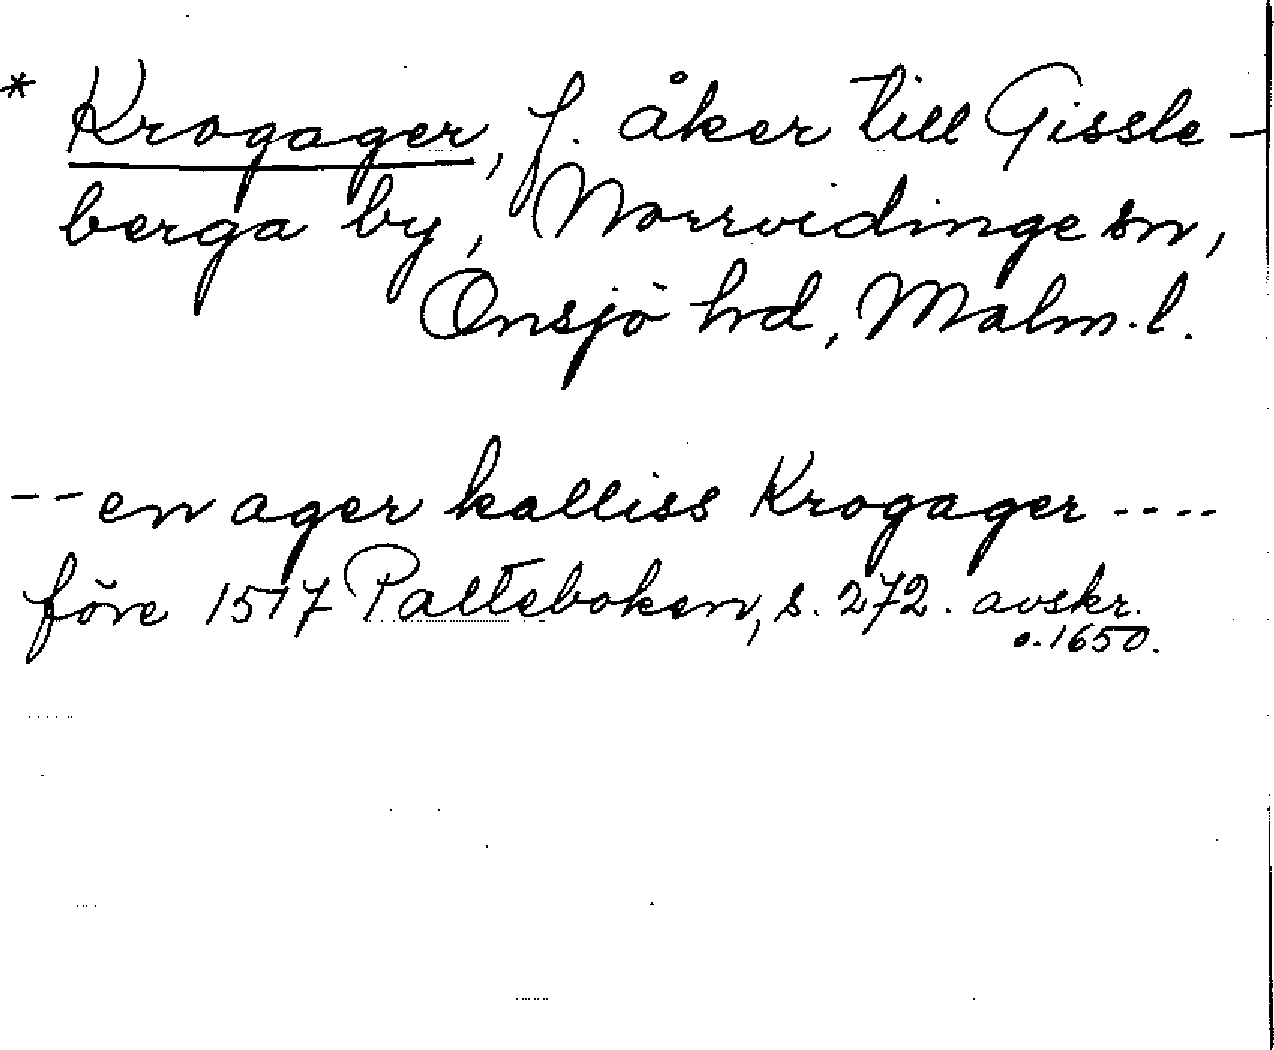 * Krogager, f. åker till Gissle-
berga by, Norrvidinge sn,
Onsjö hrd, Malm. l.
-- en ager kalliss Krogager ----
före 1517 Palteboken, s. 272. avskr.
o. 1650.